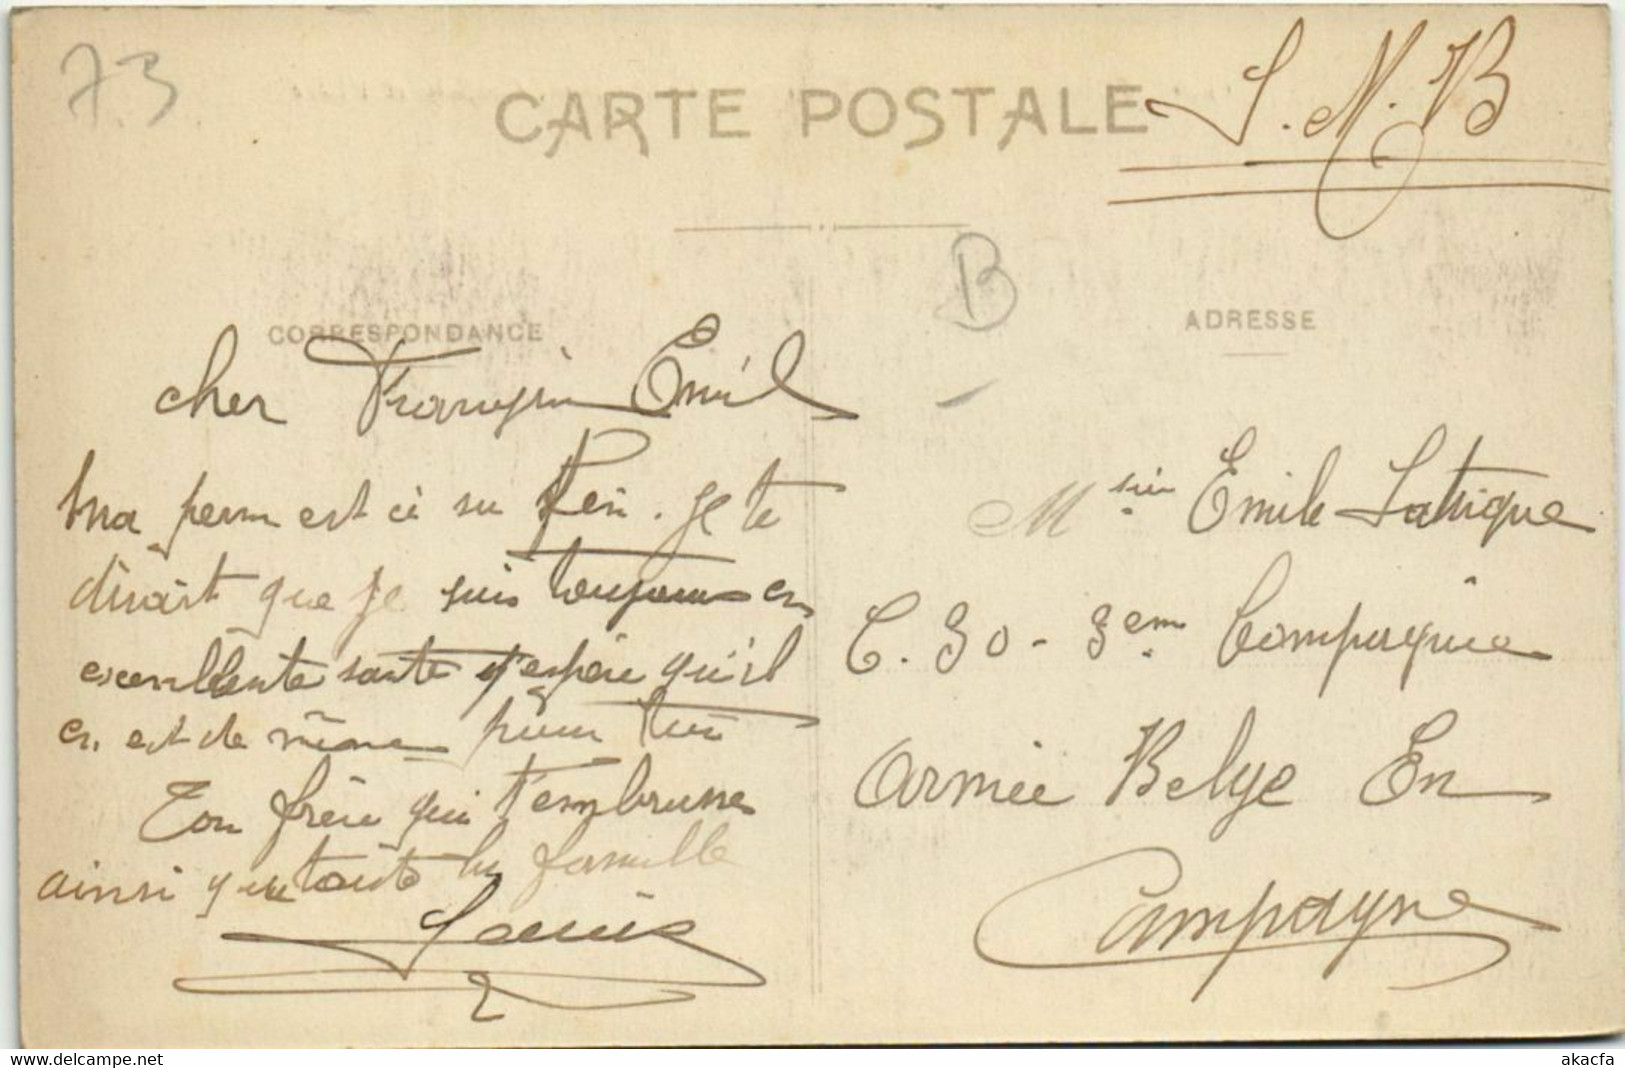 73
CARTE POSTALE
S. M. B
B
CORRESPONDANCE
ADRESSE
cher Frangin Emil
Ma perm est ci su fin. Je te
dirait que je suis toujours en
excellente santé j'espère qu'il
en est de même pour toi
Ton frère qui t'embrasse
ainsi que toute la famille
Louis
Msieu Emile Latrique
C. 30 - 3em Compagnie
Armée Belge En
Campagne
www.delcampe.net
akacfa